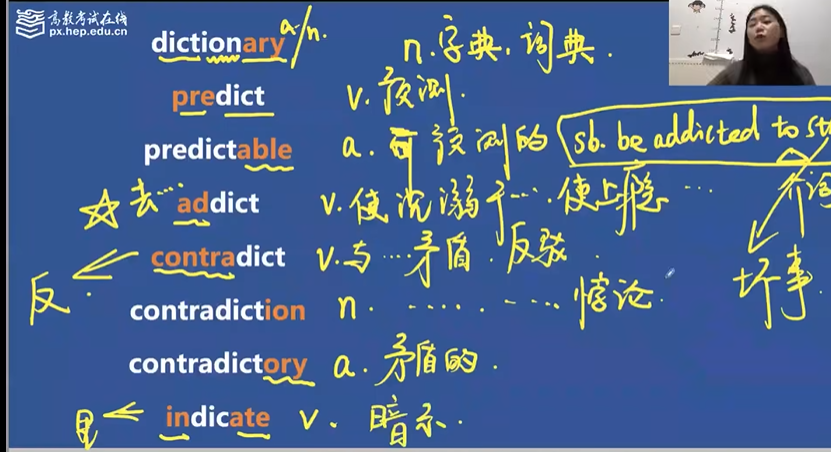 高教考试在线
px.hep.edu.cn
dictionary a/n. n.字典,词典.
predict v.预测.
predictable a.可预测的 sb. be addicted to st
介词
坏事
去… addict v.使沉溺于….使上瘾…
反. contradict v.与…矛盾.反驳.
contradiction n. …… …. 悖论.
contradictory a.矛盾的.
indicate v.暗示.